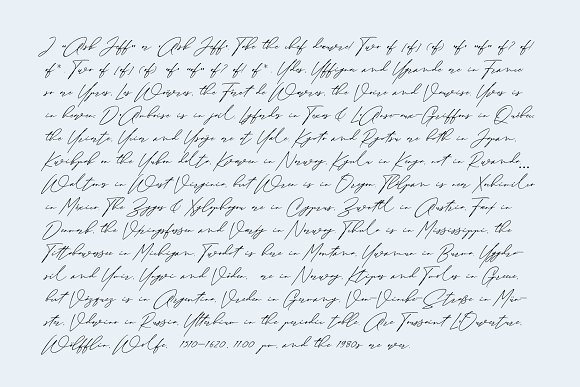 “Ask Jeff” or ‘Ask Jeff’. Take the chef d’œuvre! Two of [of] (of) ‘of’ “of” of? of!
of*. Two of [of] (of) ‘of’ “of” of? of! of*. Ydes, Yffignac and Ygrande are in France:
so are Ypres, Les Woëvres, the Fôret de Wœvres, the Voire and Vauvise. Yves is
in heaven; D’Amboise is in jail. Lyford’s in Texas & L’Anse-aux-Griffons in Québec;
the Yriarte, Yciar and Ysaÿe are at Yale. Kyoto and Ryotsu are both in Japan,
Kwikpak on the Yukon delta, Kvæven in Norway, Kyulu in Kenya, not in Rwanda.…
Walton’s in West Virginia, but Wren is in Oregon. Tlálpan is near Xochimilco
in México. The Zygos & Xylophagou are in Cyprus, Zwettl in Austria, Fænø in
Denmark, the Vøringsfossen and Værøy in Norway. Tchula is in Mississippi, the
Tittabawassee in Michigan. Twodot is here in Montana, Ywamun in Burma. Yggdra-
sil and Ymir, Yngvi and Vóden, are in Norway, Ktipas and Tmolos in Greece,
but Vázquez is in Argentina, Vreden in Germany, Von-Vincke-Straße in Mün-
ster, Vdovino in Russia, Ytterbium in the periodic table. Are Toussaint L’Ouverture,
Wölfflin, Wolfe, 1510–1620, 11:00 pm, and the 1980s are over.